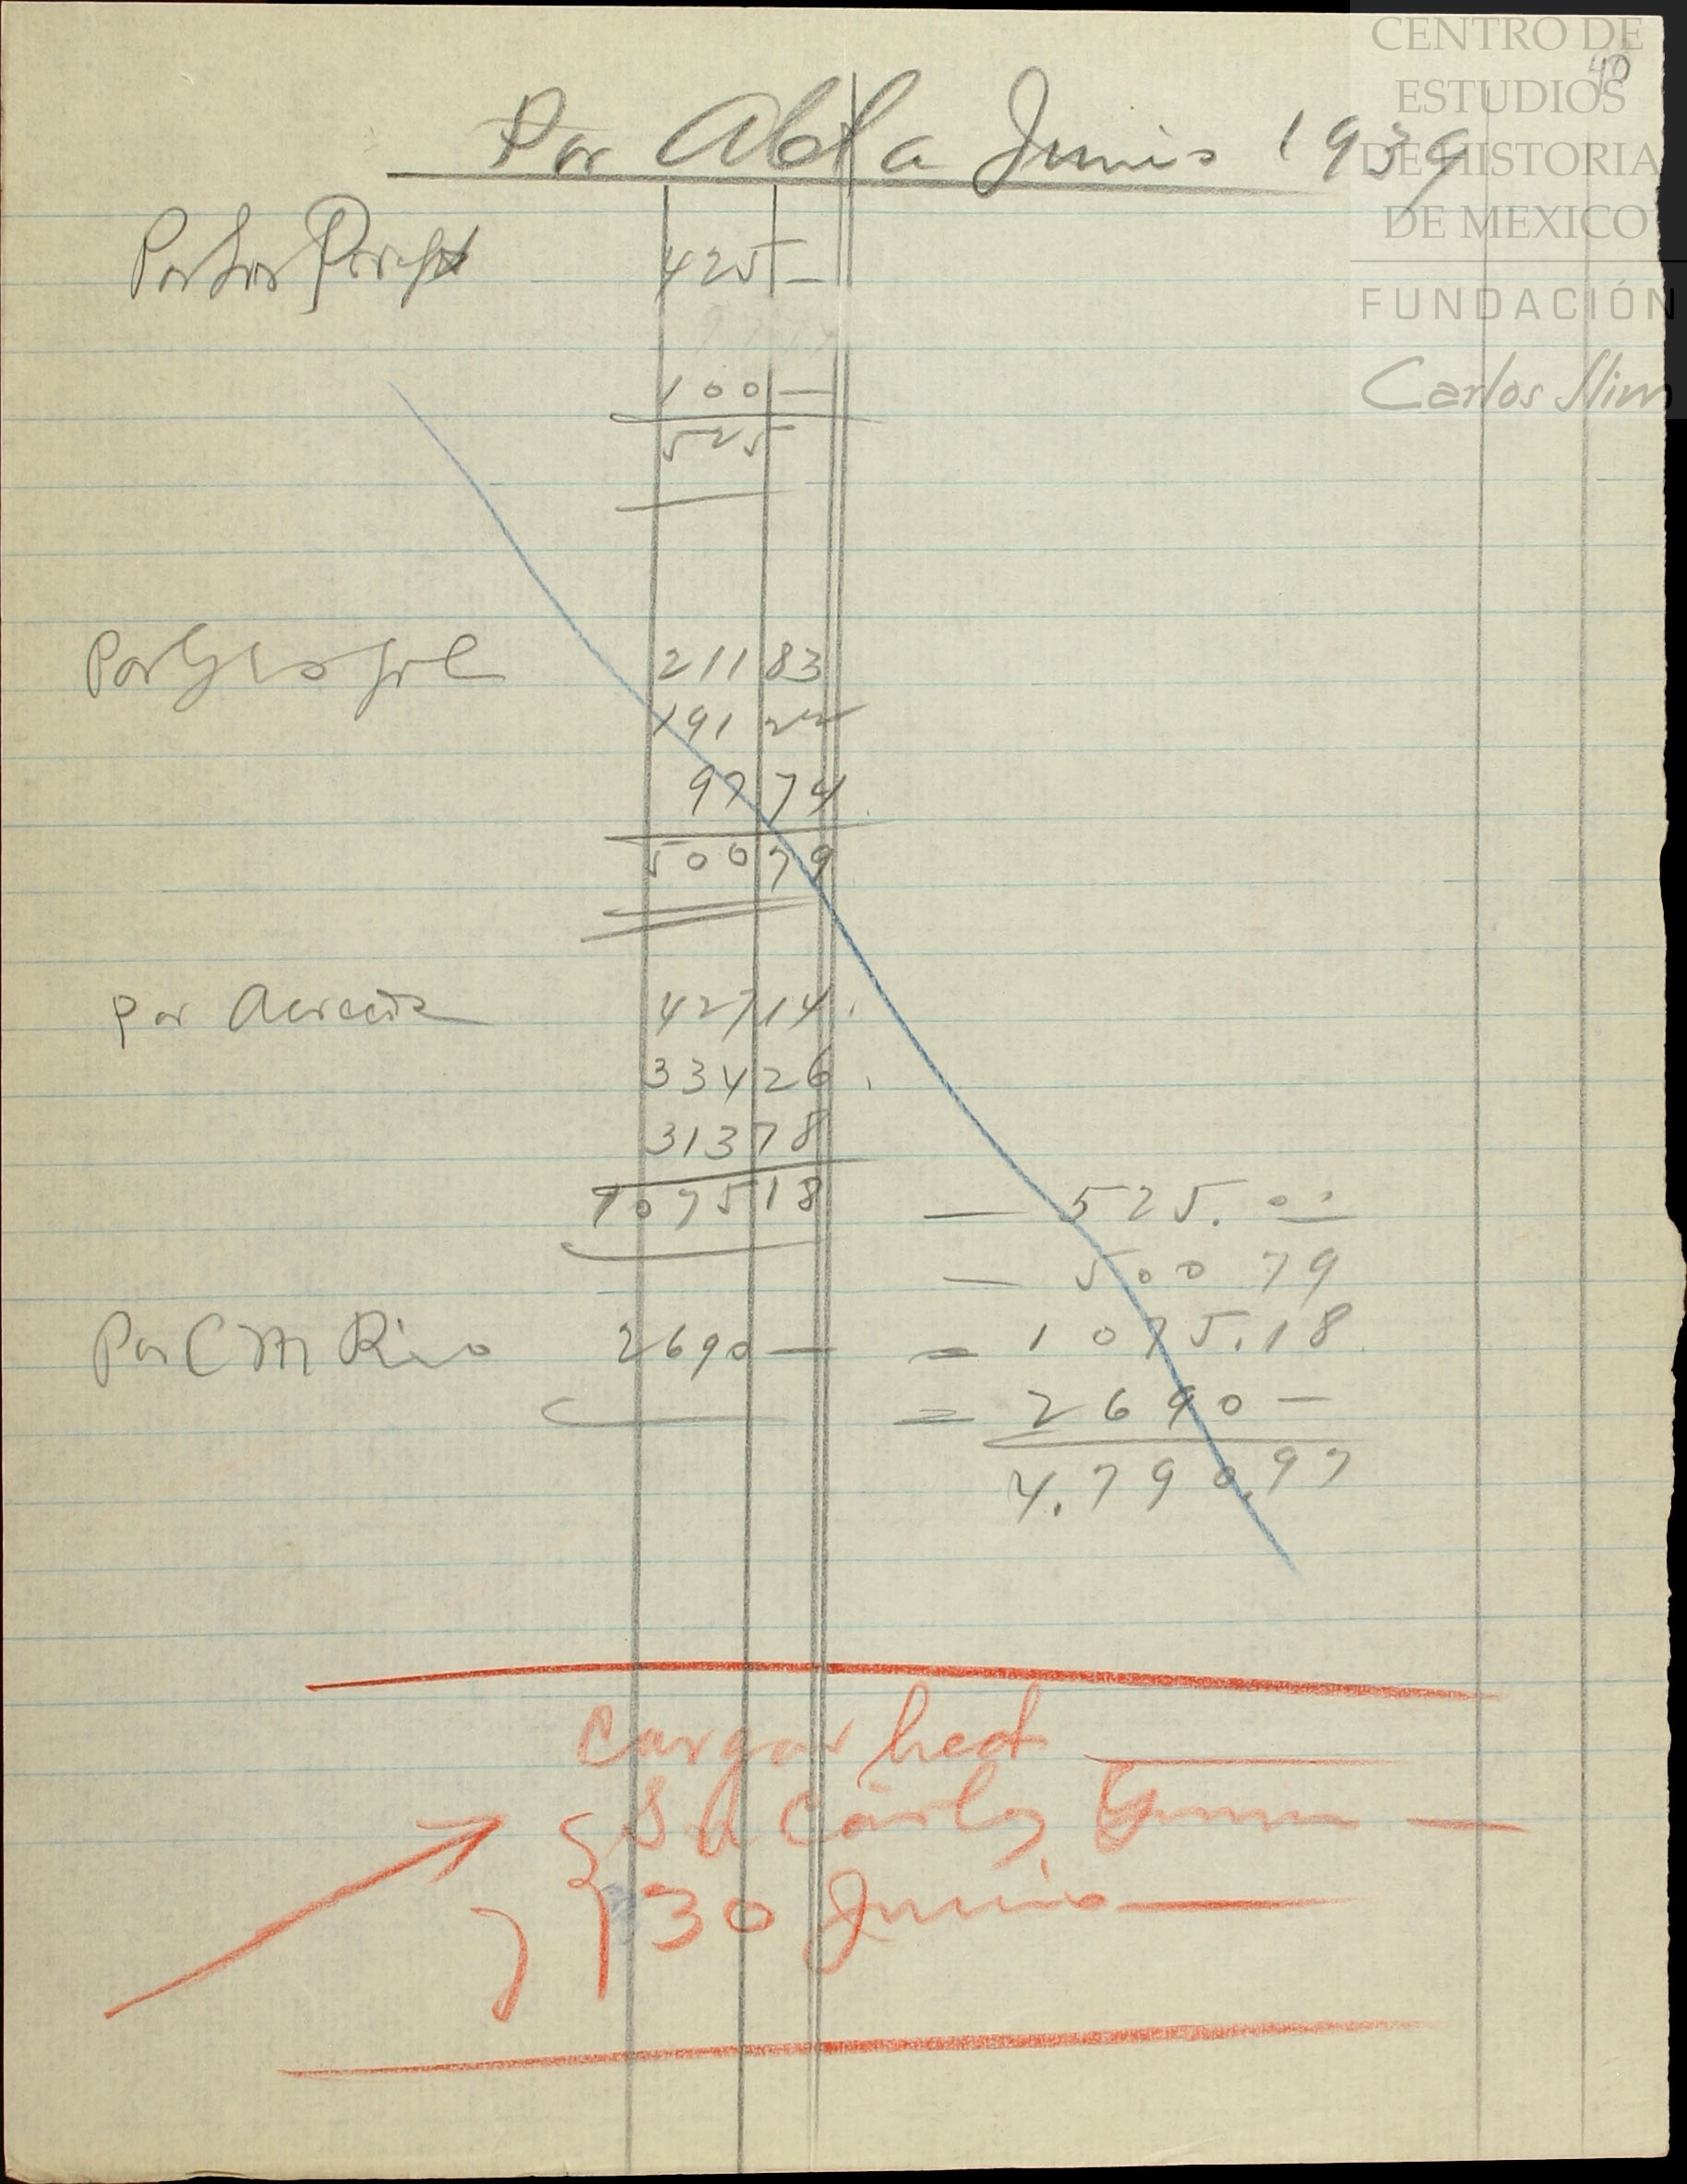 CENTRO DE
ESTUDIOS
DE HISTORIA
DE MEXICO
FUNDACIÓN
Carlos Slim
40
Por Abl a Junio 1939
Por
425 —
100 —
525 —
Por
211 83
191 22
97 74
500 79
por
427 14
334 26
313 78
1075 18
— 525.00
— 500 79
Por C M Rivo 2690 — = 1075.18
= 2690 —
4.790.97
Cargar
S A Carlos
30 Junio